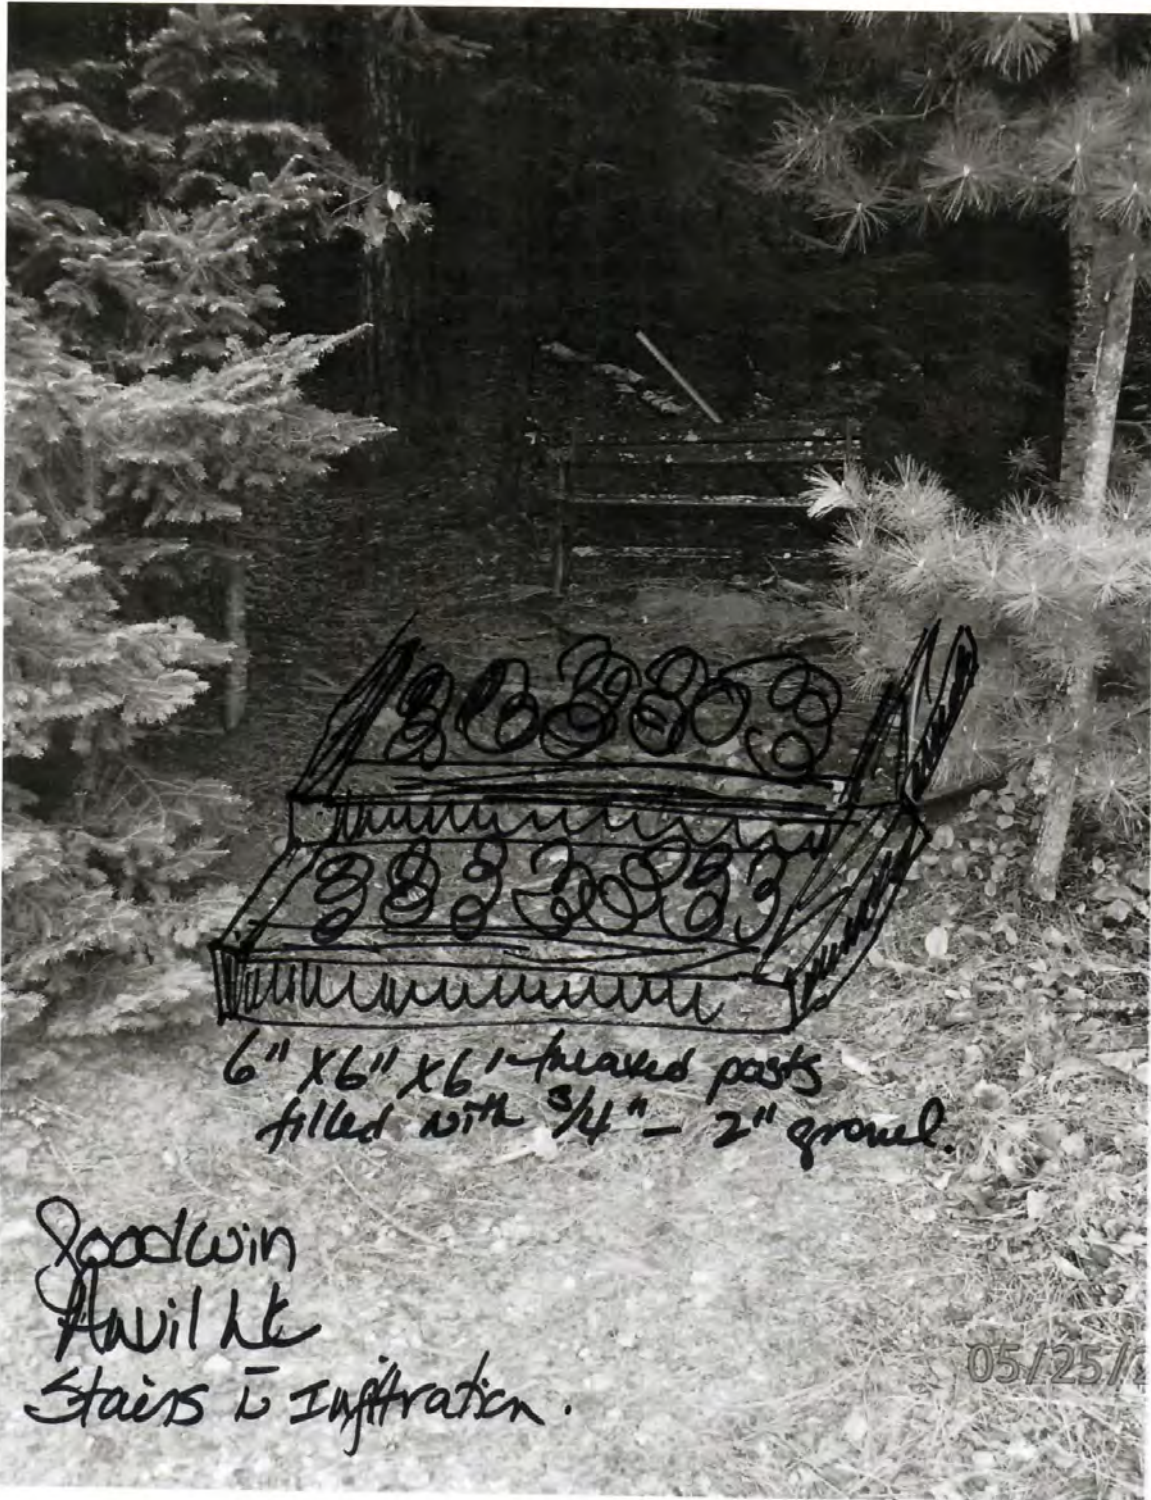 6" x 6" x 6' treated posts
filled with 3/4" - 2" gravel.
Goodwin
Anvil Lk
Stairs c̄ Infiltration.
05/25/2